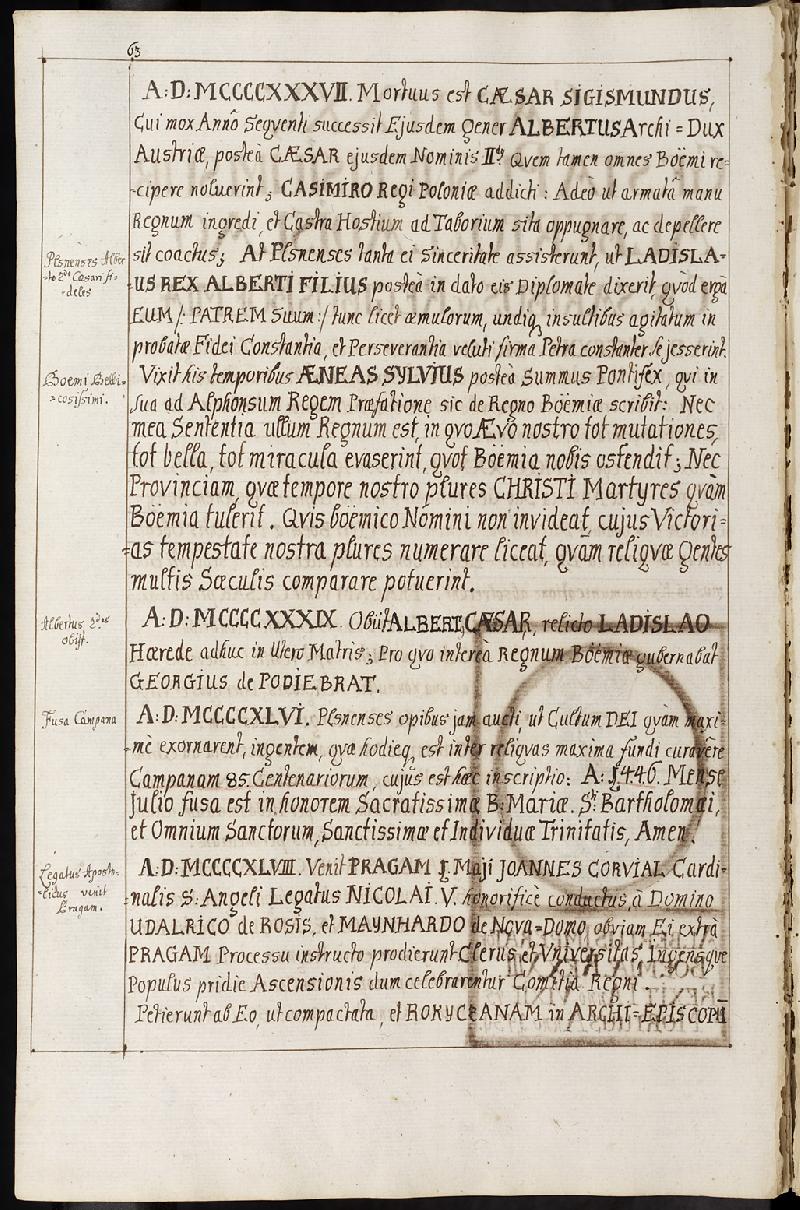 63
A: D: MCCCCXXXVII. Mortuus est CÆSAR SIGISMUNDUS,
Cui mox Anno Seqventi successit Ejusdem Gener ALBERTUS Archi=Dux
Austriæ, posteà CÆSAR ejusdem Nominis II.dus Qvem tamen omnes Boëmi re=
=cipere noluerint; CASIMIRO Regi Poloniæ addicti: Adeò ut armatâ manu
Regnum ingredi, et Castra Hostium ad Taborium sita oppugnare, ac depellere
Plsnenses Alber=
=to 2do Cæsari fi=
=deles
sit coactus; At Plsnenses tanta ei Sinceritate assisterunt, ut LADISLA=
US REX ALBERTI FILIUS posteà in dato eis Diplomate dixerit, qvòd ergà
EUM /: PATREM Suum :/ tunc licet æmulorum, undiq, insultibus agitatum in
probatæ Fidei Constantia, et Perseverantia veluti firma Petra constanter se jesserint.
Boëmi Belli=
=cosissimi.
Vixit his temporibus ÆNEAS SYLVIUS posteà Summus Pontifex, qvi in
sua ad Alphonsum Regem Præfatione sic de Regno Boëmiæ scribit: Nec
mea Sententia ullum Regnum est, in qvo Ævo nostro tot mutationes,
tot bella, tot miracula evaserint, qvot Boëmia nobis ostendit; Nec
Provinciam, qvæ tempore nostro plures CHRISTI Martyres qvam
Boëmia tulerit. Qvis boëmico Nomini non invideat, cujus Victori=
=as tempestate nostra plures numerare liceat, qvàm reliqvæ Gentes
multis Sæculis comparare potuerint.
Albertus 2dus
obijt.
A: D: MCCCCXXXIX. Obiit ALBERT, CÆSAR, relicto LADISLAO
Hærede adhuc in Utero Matris; Pro qvo intereà Regnum Boëmiæ gubernabat
GEORGIUS de PODIEBRAT.
Fusa Campana
A: D: MCCCCXLVI. Plsnenses opibus jam aucti, ut Cultum DEI qvàm maxi=
mè exornarent, ingentem, qvæ hodieq, est inter reliqvas maxima fundi curavêre
Campanam 85. Centenariorum, cujus est hæc inscriptio: A: 1446. Mense
Julio fusa est in honorem Sacratissimæ B: Mariæ. St Bartholomæi,
et Omnium Sanctorum, Sanctissimæ et Individuæ Trinitatis, Amen.
Legatus Aposto=
=licus venit
Pragam.
A: D: MCCCCXLVIII. Venit PRAGAM 1. Maji JOANNES CORVIAL Cardi=
nalis S: Angeli Legatus NICOLAI. V. honorificè conductus, à Domino
UDALRICO de ROSIS, et MAYNHARDO de Nova=Domo, obviam Ei extrà
PRAGAM Processu instructo prodierunt Clerus et Universitas, Ingensqve
Populus pridie Ascensionis dum celebrarentur Comitia Regni.
Petierunt ab Eo, ut compactata, et ROKYCZANAM in ARCHI=EPISCOPŪ